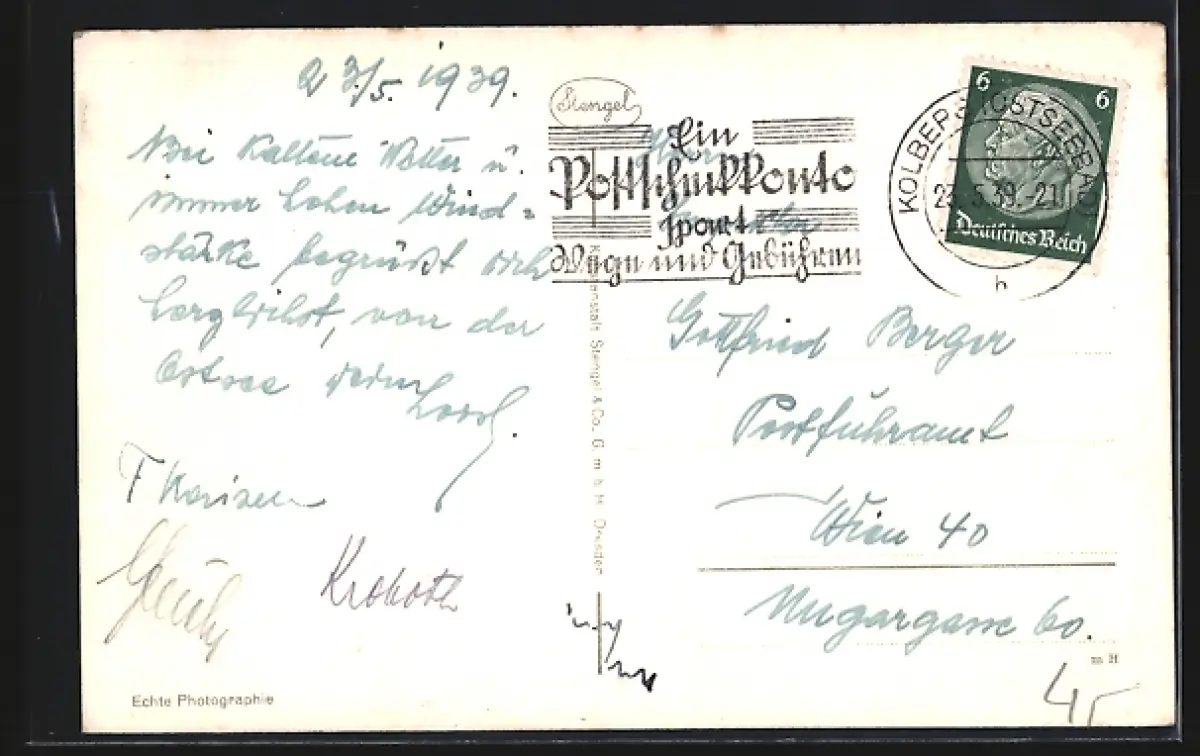 23/5. 1939.
Bei kaltem Wetter u.
immer hohen Wind-
stärke begrüßt dich
herzlichst, von der
Ostsee
Stengel
Ein
Postscheckkonto
spart
Wege und Gebühren
KOLBERG OSTSEEBAD
23.5.39.-21
h
6 6
Deutsches Reich
Gottfried Berger
Postfuhramt
Wien 40
Ungargasse 60.
Kroboth
Kunstanstalt Stengel & Co. G. m. b. H. Dresden
Echte Photographie
m H
45